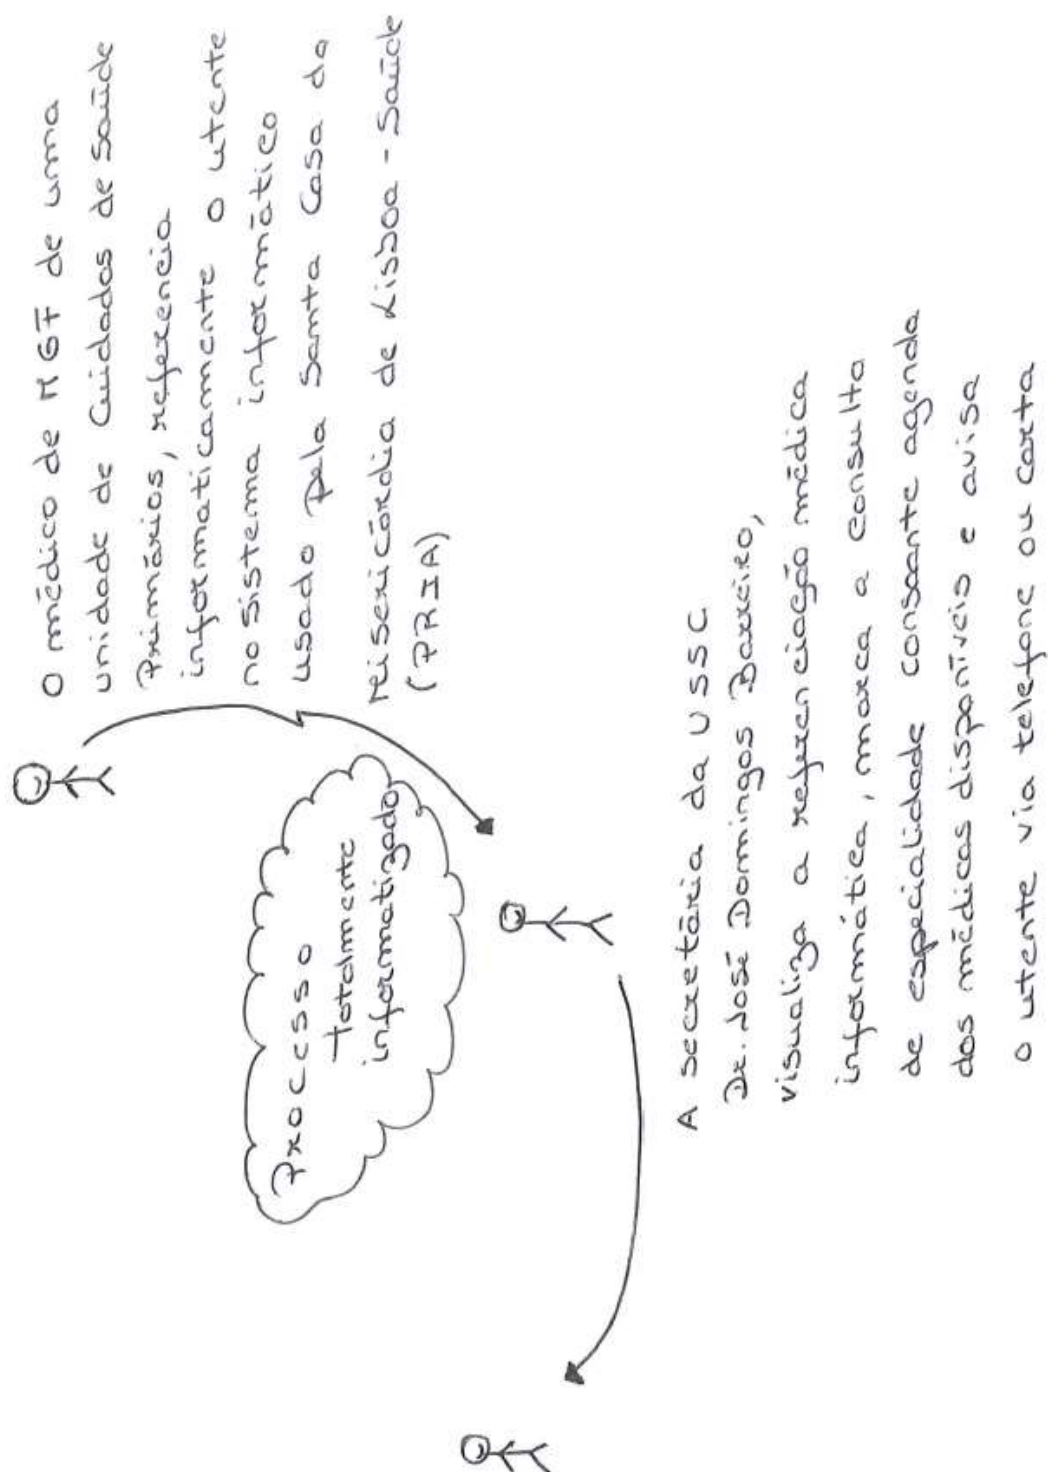 O médico de MGF de uma
unidade de Cuidados de Saúde
Primários, referencia
informaticamente o utente
no sistema informático
usado pela Santa Casa da
Misericórdia de Lisboa - Saúde
(PRIA)
Processo
totalmente
informatizado
A secretária da USSC
Dr. José Domingos Barreiro,
visualiza a referenciação médica
informática, marca a consulta
de especialidade consoante agenda
dos médicos disponíveis e avisa
o utente via telefone ou carta